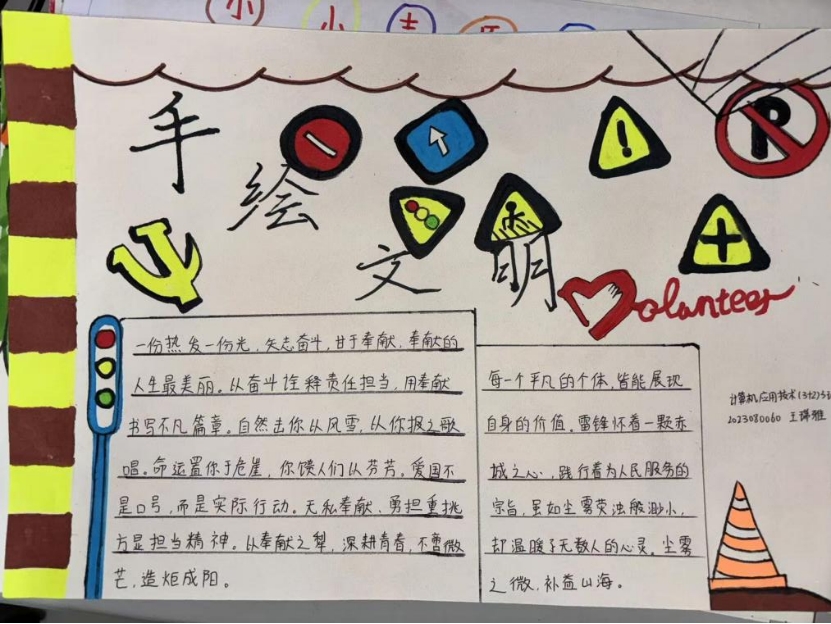 手绘文明
Volanteer
P
一份热发一份光，矢志奋斗，甘于奉献，奉献的
人生最美丽。从奋斗诠释责任担当，用奉献
书写不凡篇章。自然击你以风雪，从你报之歌
唱。命运置你于危崖，你馈人们以芬芳。爱国不
是口号，而是实际行动。无私奉献，勇担重挑
方是担当精神。以奉献之犁，深耕青春，不啻微
芒，造炬成阳。
每一个平凡的个体，皆能展现
自身的价值。雷锋怀着一颗赤
城之心，践行着为人民服务的
宗旨，虽如尘雾荧浊般渺小，
却温暖了无数人的心灵。尘雾
之微，补益山海。
计算机应用技术(3+2)
2023080060 王